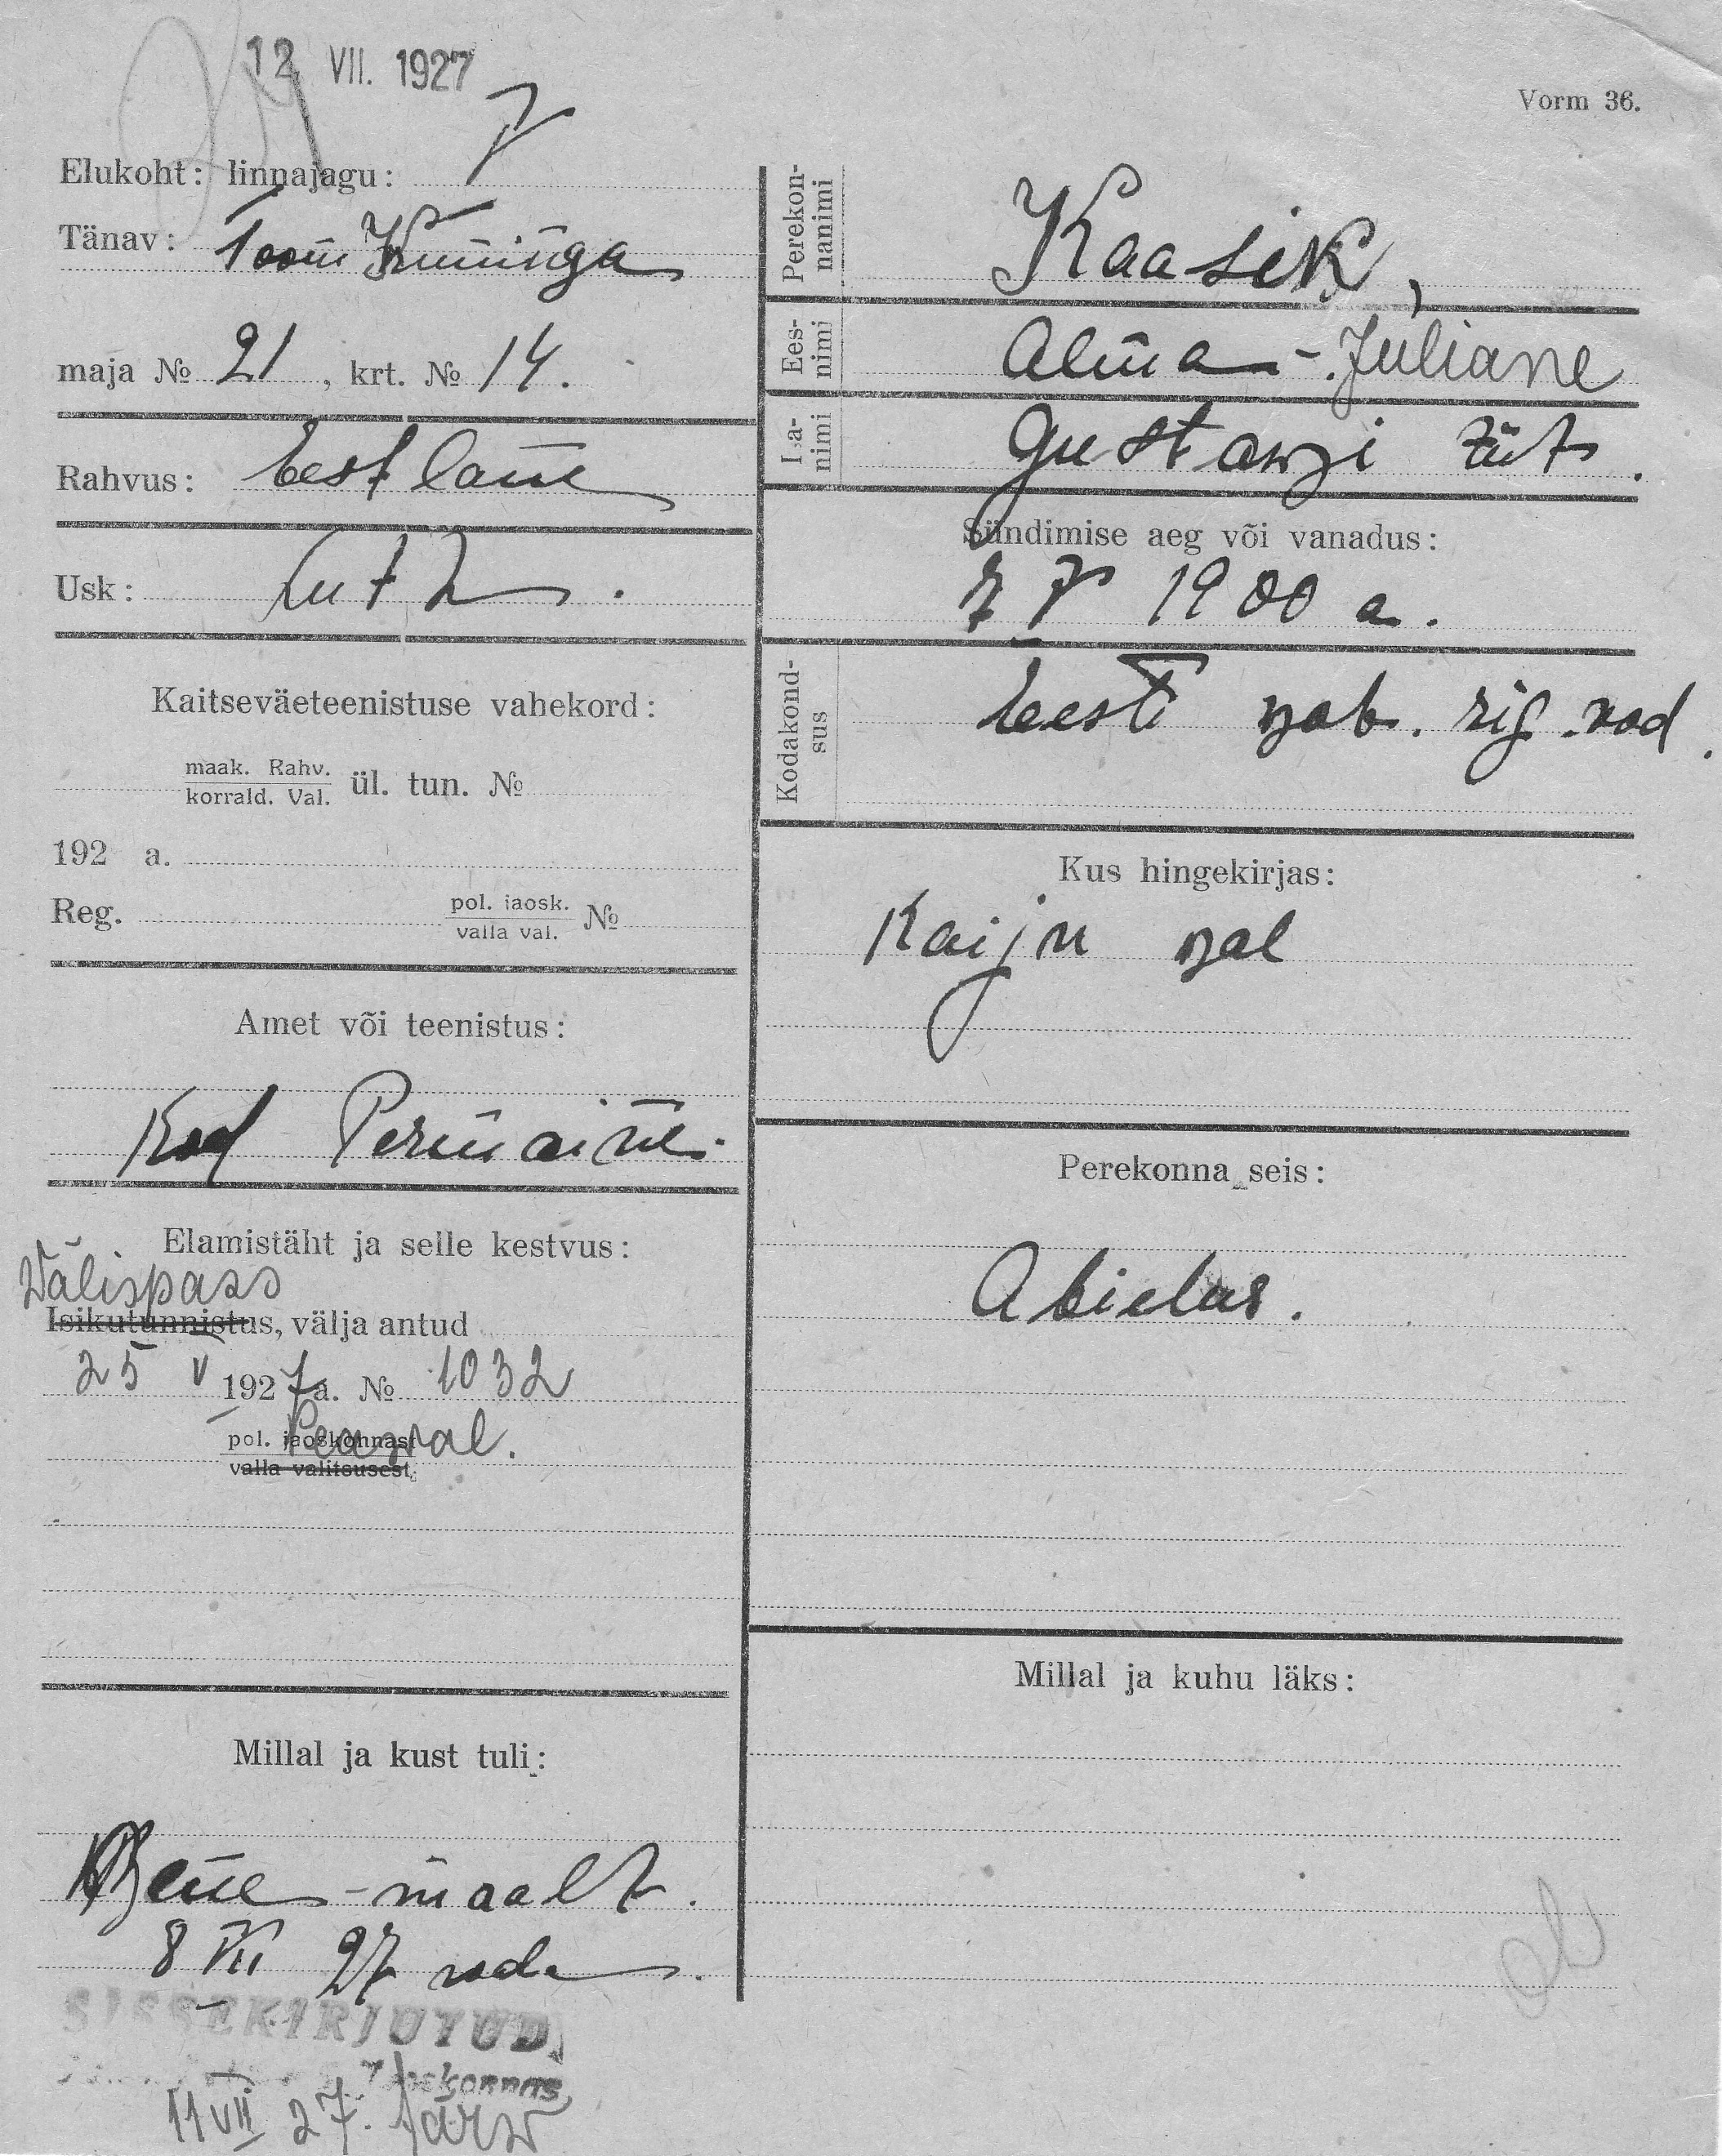 12 VII. 1927
Vorm 36.
Elukoht: linnajagu:
Tänav: Toom Kuninga
maja № 21, krt. № 14.
Rahvus: Eestlane
Usk: Luth.
Kaitseväeteenistuse vahekord:
maak. Rahv.
korrald. Val. ül. tun. №
192 a.
Reg. pol. jaosk.
valla val. №
Amet või teenistus:
Kod Perenaine.
Elamistäht ja selle kestvus:
Välispass
Isikutunnistus, välja antud
25 V 1927 a. № 1032
pol. jaoskonnast
valla valitsusest.
Millal ja kust tuli:
Wene-maalt.
8 VII 27
SISSEKIRJUTUD
jaoskonnas
11 VII 27. Järw
Perekon-
nanimi
Kaasik,
Ees-
nimi
Alma-Juliane
Isa-
nimi
Gustawi tüt.
Sündimise aeg või vanadus:
7 V 1900 a.
Kodakond-
sus
Eesti wab. rig. kod.
Kus hingekirjas:
Kaiju wal
Perekonna seis:
Abielus.
Millal ja kuhu läks: